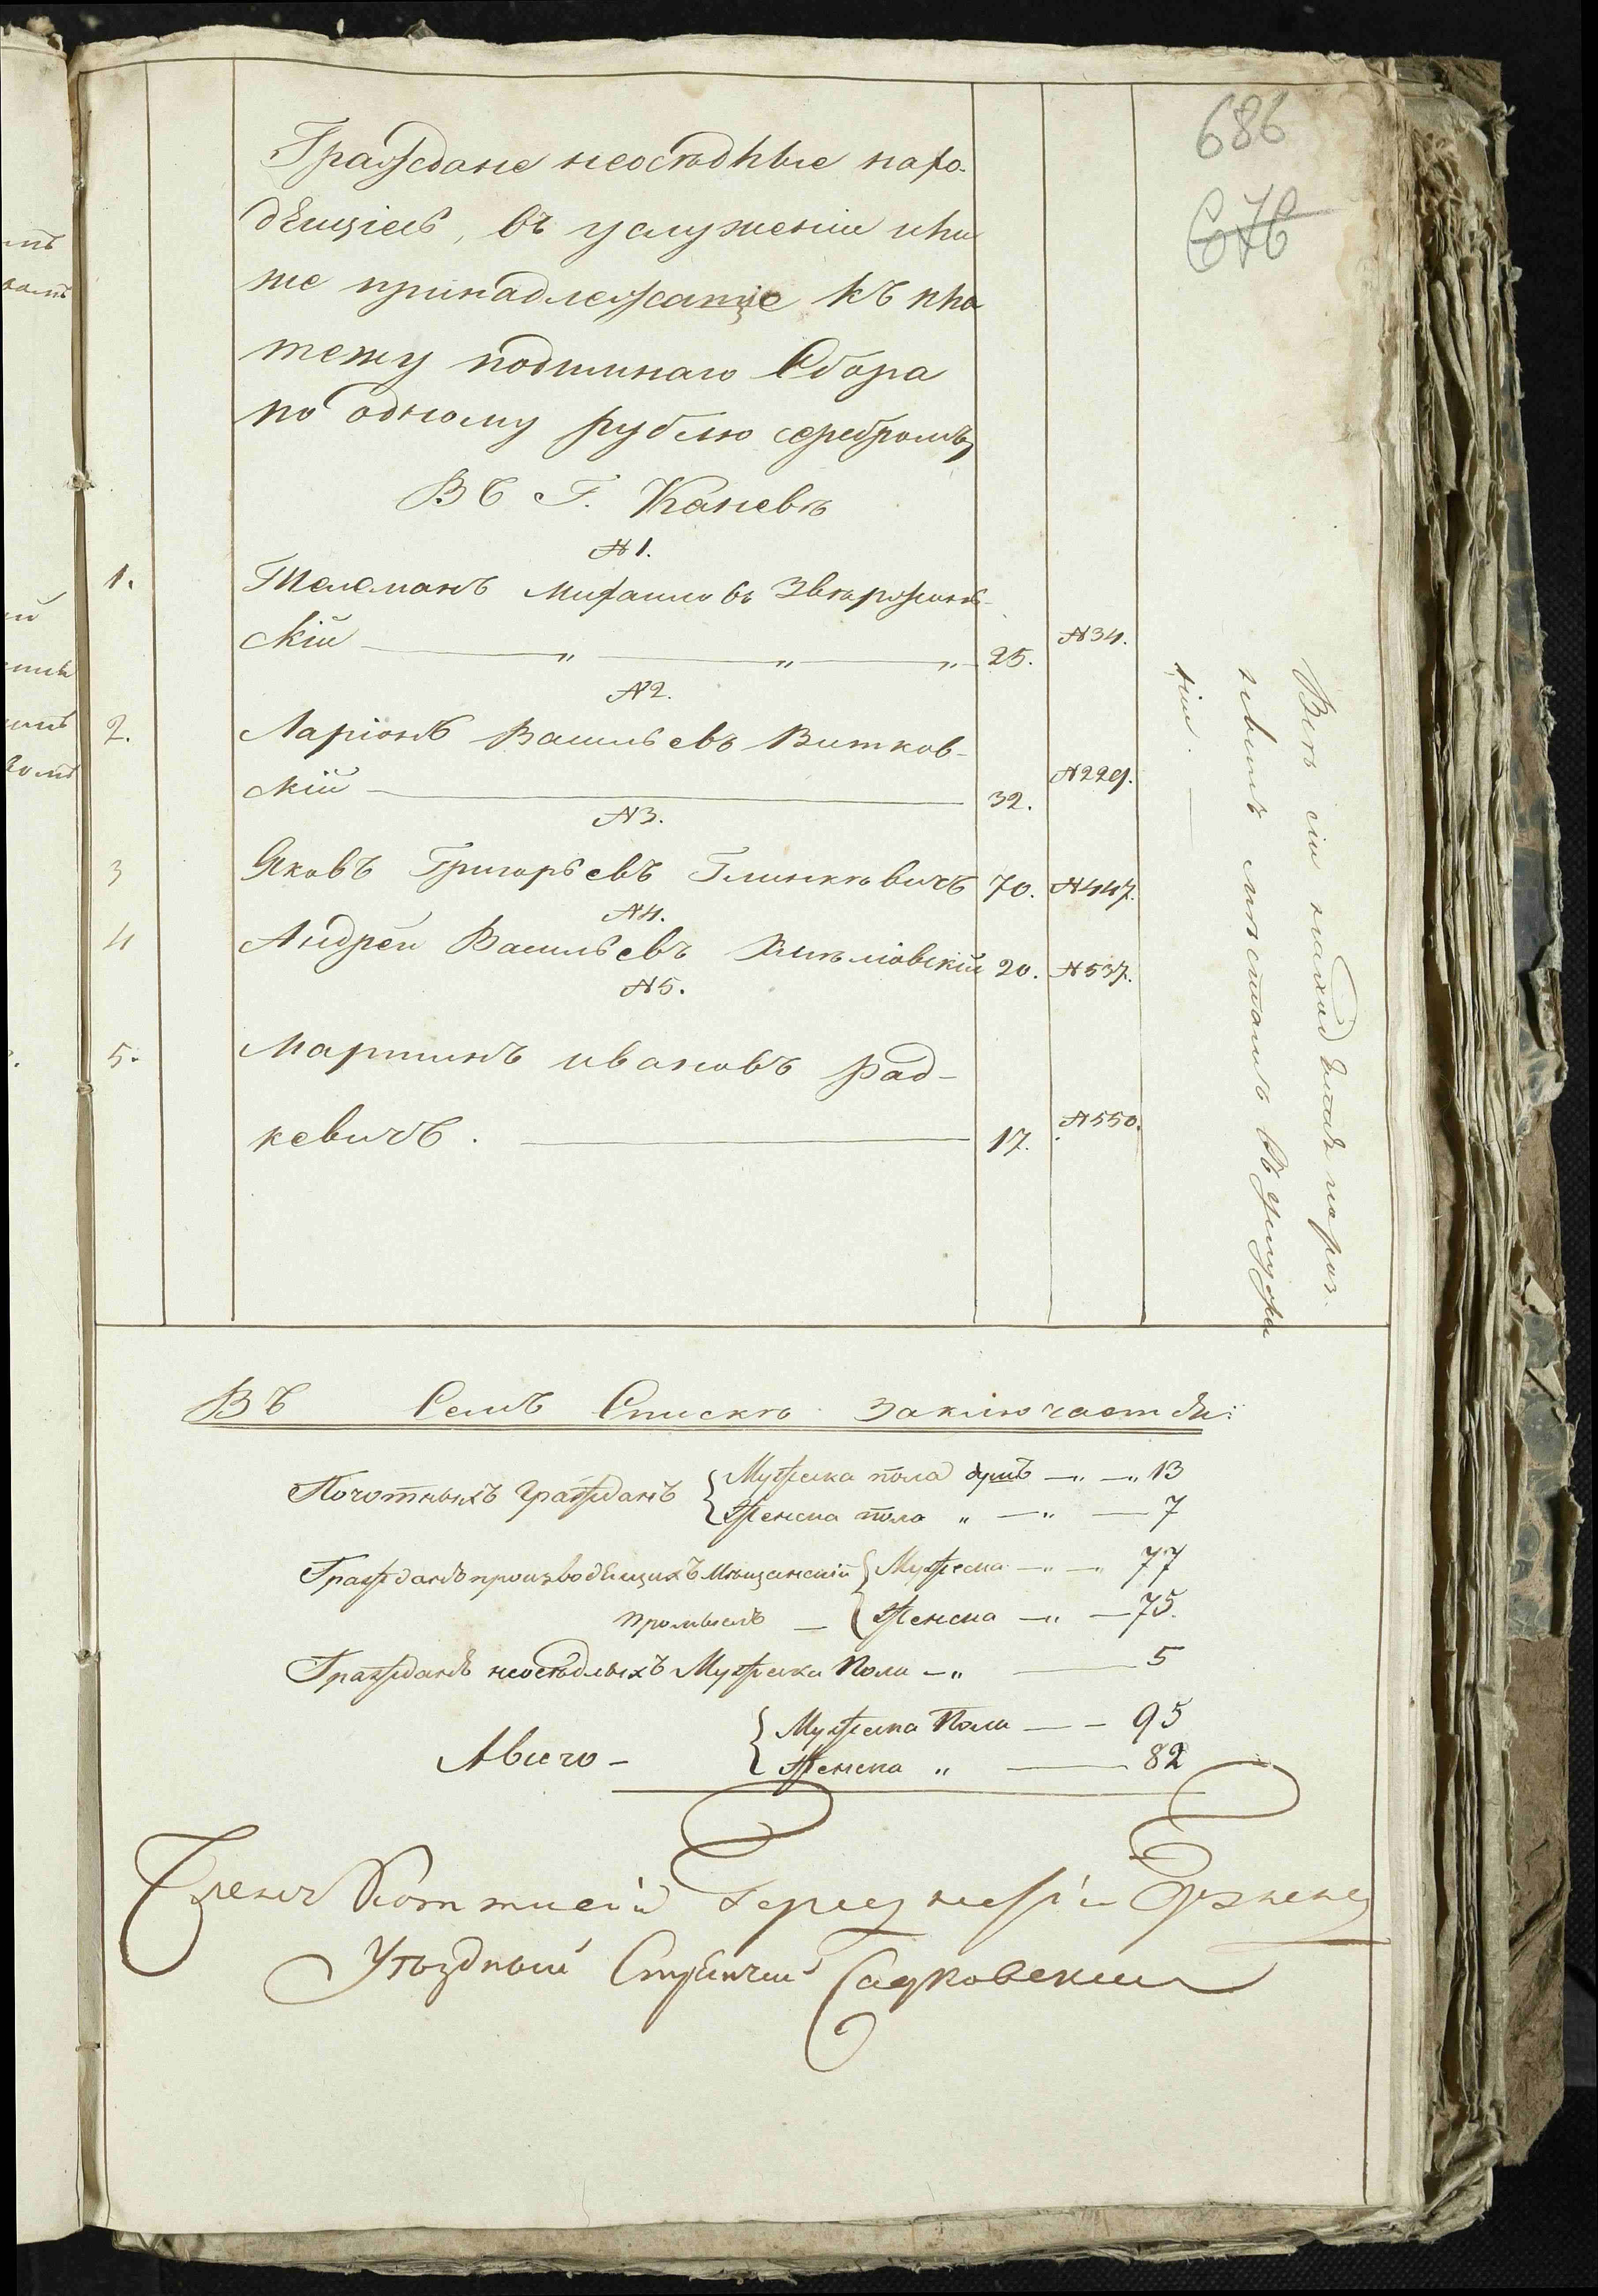 686
676
Граждане неосѣдлые нахо-
дящіеся, въ услуженіи или
же принадлежащіе къ пла
тежу подымнаго Сбора
по одному рублю серебромъ,
Въ Г. Каневѣ
№ 1.
1.
Михайловъ
скій — „ — „ — „ — 25. № 34.
№ 2.
2. Ларіонъ Васильевъ Витков-
скій — 32. № 229.
№ 3.
3 Яковъ Григорьевъ 70. № 447.
№ 4.
4 Андрей Васильевъ 20. № 537.
№ 5.
5. Мартинъ ивановъ Рад-
кевичъ. — 17. № 550.
Всѣ сіи находятся по раз-
нымъ мѣстамъ въ услуже
ніи. —
Въ Семъ Спискѣ Заключается:
Почотныхъ Гражданъ { Мужеска пола душъ — „ — „ 13
{ Женска пола „ — „ — 7
Гражданъ производящихъ Мѣщанскій { Мужеска — „ — „ 77
промыслъ — { Женска — „ — 75.
Гражданъ неосѣдлыхъ Мужеска Пола — „ — 5
Авсего — { Мужеска Пола — — 95
{ Женска „ — 82
Членъ Коммисіи
Уѣздный Стряпчий Садковский